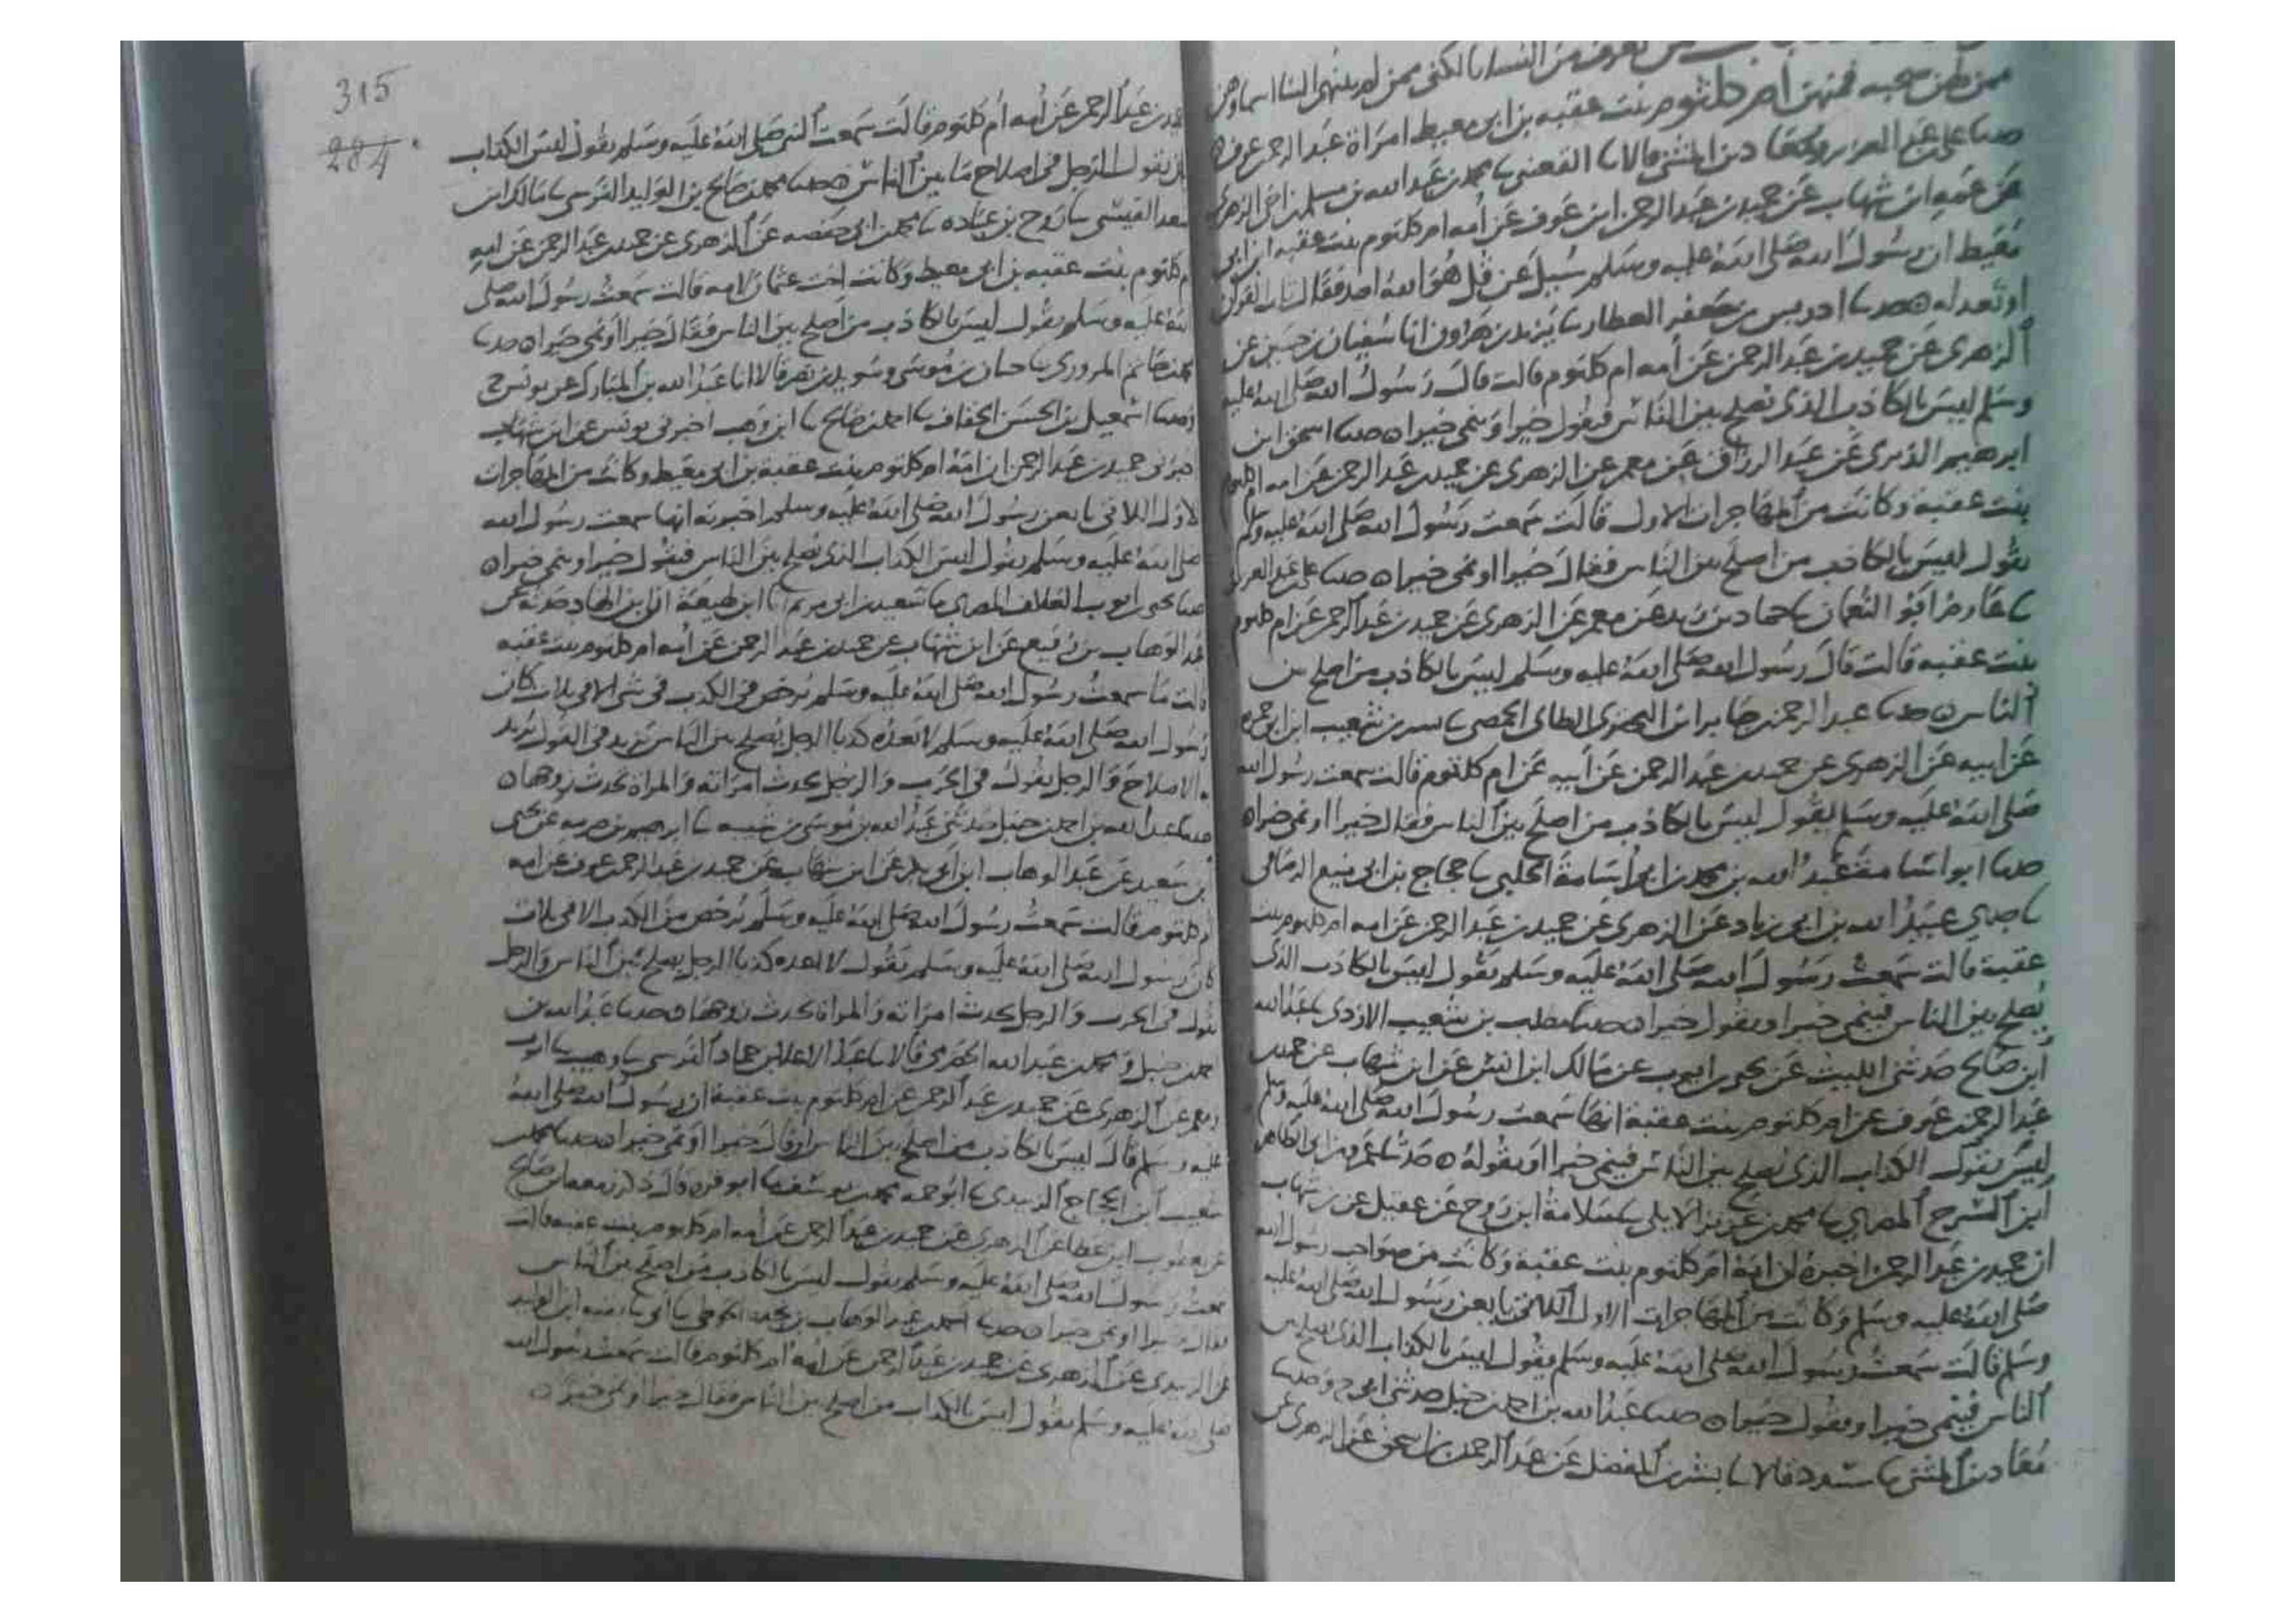 يعرف من النساء بالكنى ممن لم ينتهي الينا اسماوهن
ممن لهن صحبه فمنهن ام كلثوم بنت عقبه بن ابي معيط امراة عبد الرحمن عوف
حدثنا علي عبد العزيز ومعاذ بن المثنى قالا نا القعنبي نا محمد بن عبد الله بن مسلم بن اخي الزهري
عن عمه ابن شهاب عن حميد بن عبد الرحمن ابن عوف عن أمه ام كلثوم بنت عقبه ابن ابي
معيط ان رسول الله صلى الله عليه وسلم سيل عن قل هو الله احد فقال ثلث القرآن
او تعدله حدثنا ادريس بن جعفر العطار نا يزيد بن هرون انا سفيان بن حسين عن
الزهري عن حميد بن عبد الرحمن عن أمه ام كلثوم قالت قال رسول الله صلى الله عليه
وسلم ليس بالكاذب الذي يصلح بين الناس فيقول خيرا وينمي خيرا حدثنا اسحق ابن
ابرهيم الدبري عن عبد الرزاق عن معمر عن الزهري عن حميد بن عبد الرحمن عن امه ام كلثوم
بنت عقبة وكانت من المهاجرات الاول قالت سمعت رسول الله صلى الله عليه وسلم
يقول ليس بالكاذب من اصلح بين الناس فقال خيرا او نمى خيرا حدثنا علي عبد العزيز
نا عارم ابو النعمان نا حماد بن زيد عن معمر عن الزهري عن حميد بن عبد الرحمن عن ام كلثوم
بنت عقبه قالت قال رسول الله صلى الله عليه وسلم ليس بالكاذب من اصلح بين
الناس حدثنا عبد الرحمن جابر ابن البختري الطاي الحمصي نا بسر بن شعيب ابن ابي حمزه
عن ابيه عن الزهري عن حميد بن عبد الرحمن عن أبيه عن ام كلثوم قالت سمعت رسول الله
صلى الله عليه وسلم يقول ليس بالكاذب من اصلح بين الناس فقال خيرا او نمى خيرا
حدثنا ابو اسامة عبد الله بن محمد بن ابي اسامة الحلبي نا حجاج بن ابي منيع الرصافي
نا جدي عبيد الله بن ابي زياد عن الزهري عن حميد بن عبد الرحمن عن امه ام كلثوم بنت
عقبة قالت سمعت رسول الله صلى الله عليه وسلم يقول ليس بالكاذب الذي
يصلح بين الناس فينمي خيرا او يقول خيرا حدثنا مطلب بن شعيب الازدي نا عبد الله
ابن صالح حدثني الليث عن يحيى بن ايوب عن مالك ابن انس عن ابن شهاب عن حميد
عبد الرحمن عوف عن ام كلثوم بنت عقبة انها سمعت رسول الله صلى الله عليه وسلم
ليس يقول الكذاب الذي يصلح بين الناس فينمي خيرا او يقوله حدثنا عمرو بن ابي الطاهر
ابن السرح المصري نا محمد بن عزيز الايلي نا سلامة ابن روح عن عقيل عن بن شهاب
ان حميد بن عبد الرحمن اخبره ان امه ام كلثوم بنت عقبة وكانت من صواحب رسول الله
صلى الله عليه وسلم وكانت من المهاجرات الاول اللاتي بايعن رسول الله صلى الله عليه
وسلم قالت سمعت رسول الله صلى الله عليه وسلم يقول ليس بالكذاب الذي يصلح بين
الناس فينمي خيرا ويقول خيرا حدثنا عبد الله بن احمد بن حنبل حدثني ابي ح وحدثنا
معاذ بن المثنى نا مسدد قالا نا بشر بن المفضل عن عبد الرحمن بن اسحق عن الزهري عن
315
284
حميد بن عبد الرحمن عن أمه أم كلثوم قالت سمعت النبي صلى الله عليه وسلم يقول ليس الكذاب
بان يقول الرجل في اصلاح ما بين الناس حدثنا محمد بن صالح بن الوليد النرسي نا مالك ابن
سعد القيسي نا روح بن عباده نا محمد بن ابي حفصه عن الزهري عن حميد بن عبد الرحمن عن امه
ام كلثوم بنت عقبه بن ابي معيط وكانت اخت عثمان لامه قالت سمعت رسول الله صلى
الله عليه وسلم يقول ليس بالكاذب من اصلح بين الناس فقال خيرا او نمى خيرا حدثنا
محمد بن حاتم المروزي نا حبان بن موسى وسويد بن نصر قالا انا عبد الله بن المبارك عن يونس ح
وحدثنا اسمعيل بن الحسن الخفاف نا احمد بن صالح نا ابن وهب اخبرني يونس عن ابن شهاب
اخبرني حميد بن عبد الرحمن ان امه ام كلثوم بنت عقبة بن ابي معيط وكانت من المهاجرات
الاول اللاتي بايعن رسول الله صلى الله عليه وسلم اخبرته انها سمعت رسول الله
صلى الله عليه وسلم يقول ليس الكذاب الذي يصلح بين الناس فيقول خيرا وينمي خيرا
حدثنا يحيى ايوب العلاف المصري نا سعيد بن ابي مريم انا ابن لهيعة ان ابن الهاد حدثه عن
عبد الوهاب بن رفيع عن ابن شهاب عن حميد بن عبد الرحمن عن أمه ام كلثوم بنت عقبه
قالت ما سمعت رسول الله صلى الله عليه وسلم يرخص في الكذب في شي الا في ثلاث كان
رسول الله صلى الله عليه وسلم لا يعده كذبا الرجل يصلح بين الناس يزيد في القول يريد
به الاصلاح والرجل يقول في الحرب والرجل يحدث امراته والمراة تحدث زوجها
حدثنا عبد الله بن احمد بن حنبل حدثني عبد الله بن موسى بن شيبه نا ابرهيم بن صرمه عن يحيى
بن سعيد عن عبد الوهاب ابن ابي بكر عن ابن شهاب عن حميد بن عبد الرحمن عوف عن امه
ام كلثوم قالت سمعت رسول الله صلى الله عليه وسلم يرخص من الكذب الا في ثلاث
كان رسول الله صلى الله عليه وسلم يقول لا اعده كذبا الرجل يصلح بين الناس والرجل
يقول في الحرب والرجل يحدث امراته والمراة تحدث زوجها حدثنا عبد الله بن
احمد حنبل ومحمد بن عبد الله الحضرمي قالا نا عبد الاعلى بن حماد النرسي نا وهيب نا ايوب
ومعمر عن الزهري عن حميد بن عبد الرحمن عن ام كلثوم بنت عقبة ان رسول الله صلى الله
عليه وسلم قال ليس بالكاذب من اصلح بين الناس او قال خيرا او نمى خيرا حدثنا محمد
شعيب ابن الحجاج الزبيدي نا ابو حمه محمد بن يوسف نا ابو قره قال ذكر زمعه بن صالح
عن يعقوب ابن عطا عن الزهري عن حميد بن عبد الرحمن عن أمه ام كلثوم بنت عقبه قالت
سمعت رسول الله صلى الله عليه وسلم يقول ليس بالكاذب من اصلح بين الناس
فقال خيرا او نمى خيرا حدثنا احمد بن عبد الوهاب بن نجده الحوطي نا ابي نا بقيه ابن الوليد
عن الزبيدي عن الزهري عن حميد بن عبد الرحمن عن أمه ام كلثوم قالت سمعت رسول الله
صلى الله عليه وسلم يقول ليس بالكذاب من اصلح بين الناس فقال خيرا او نمى خيرا